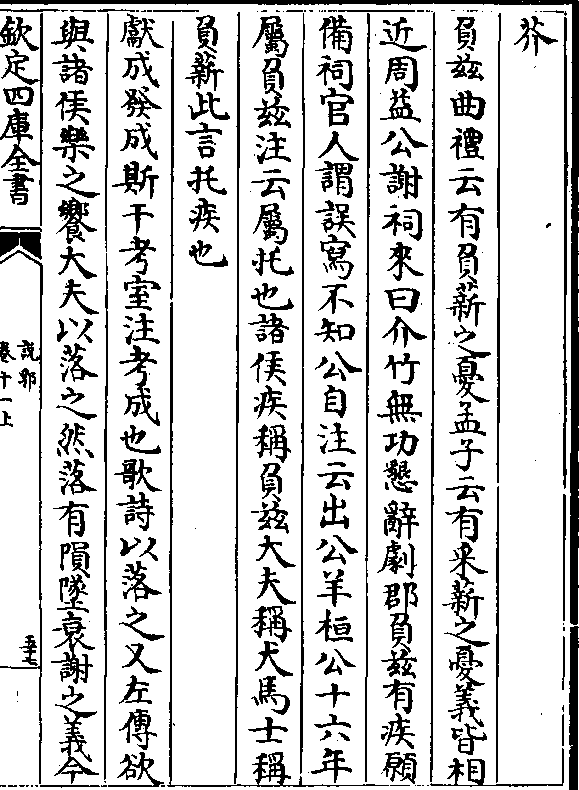 芥
負兹曲禮云有負薪之憂孟子云有采薪之憂義皆相
近周益公謝祠來曰介竹無功懇辭劇郡負兹有疾願
備祠官人謂誤寫不知公自注云出公羊桓公十六年
屬負兹注云屬托也諸侯疾稱負兹大夫稱犬馬士稱
負薪此言托疾也
獻成發成斯干考室注考成也歌詩以落之又左傳欲
與諸侯樂之饗大夫以落之然落有隕墜衰謝之義今
欽定四庫全書
説郛
卷十一上
五十七